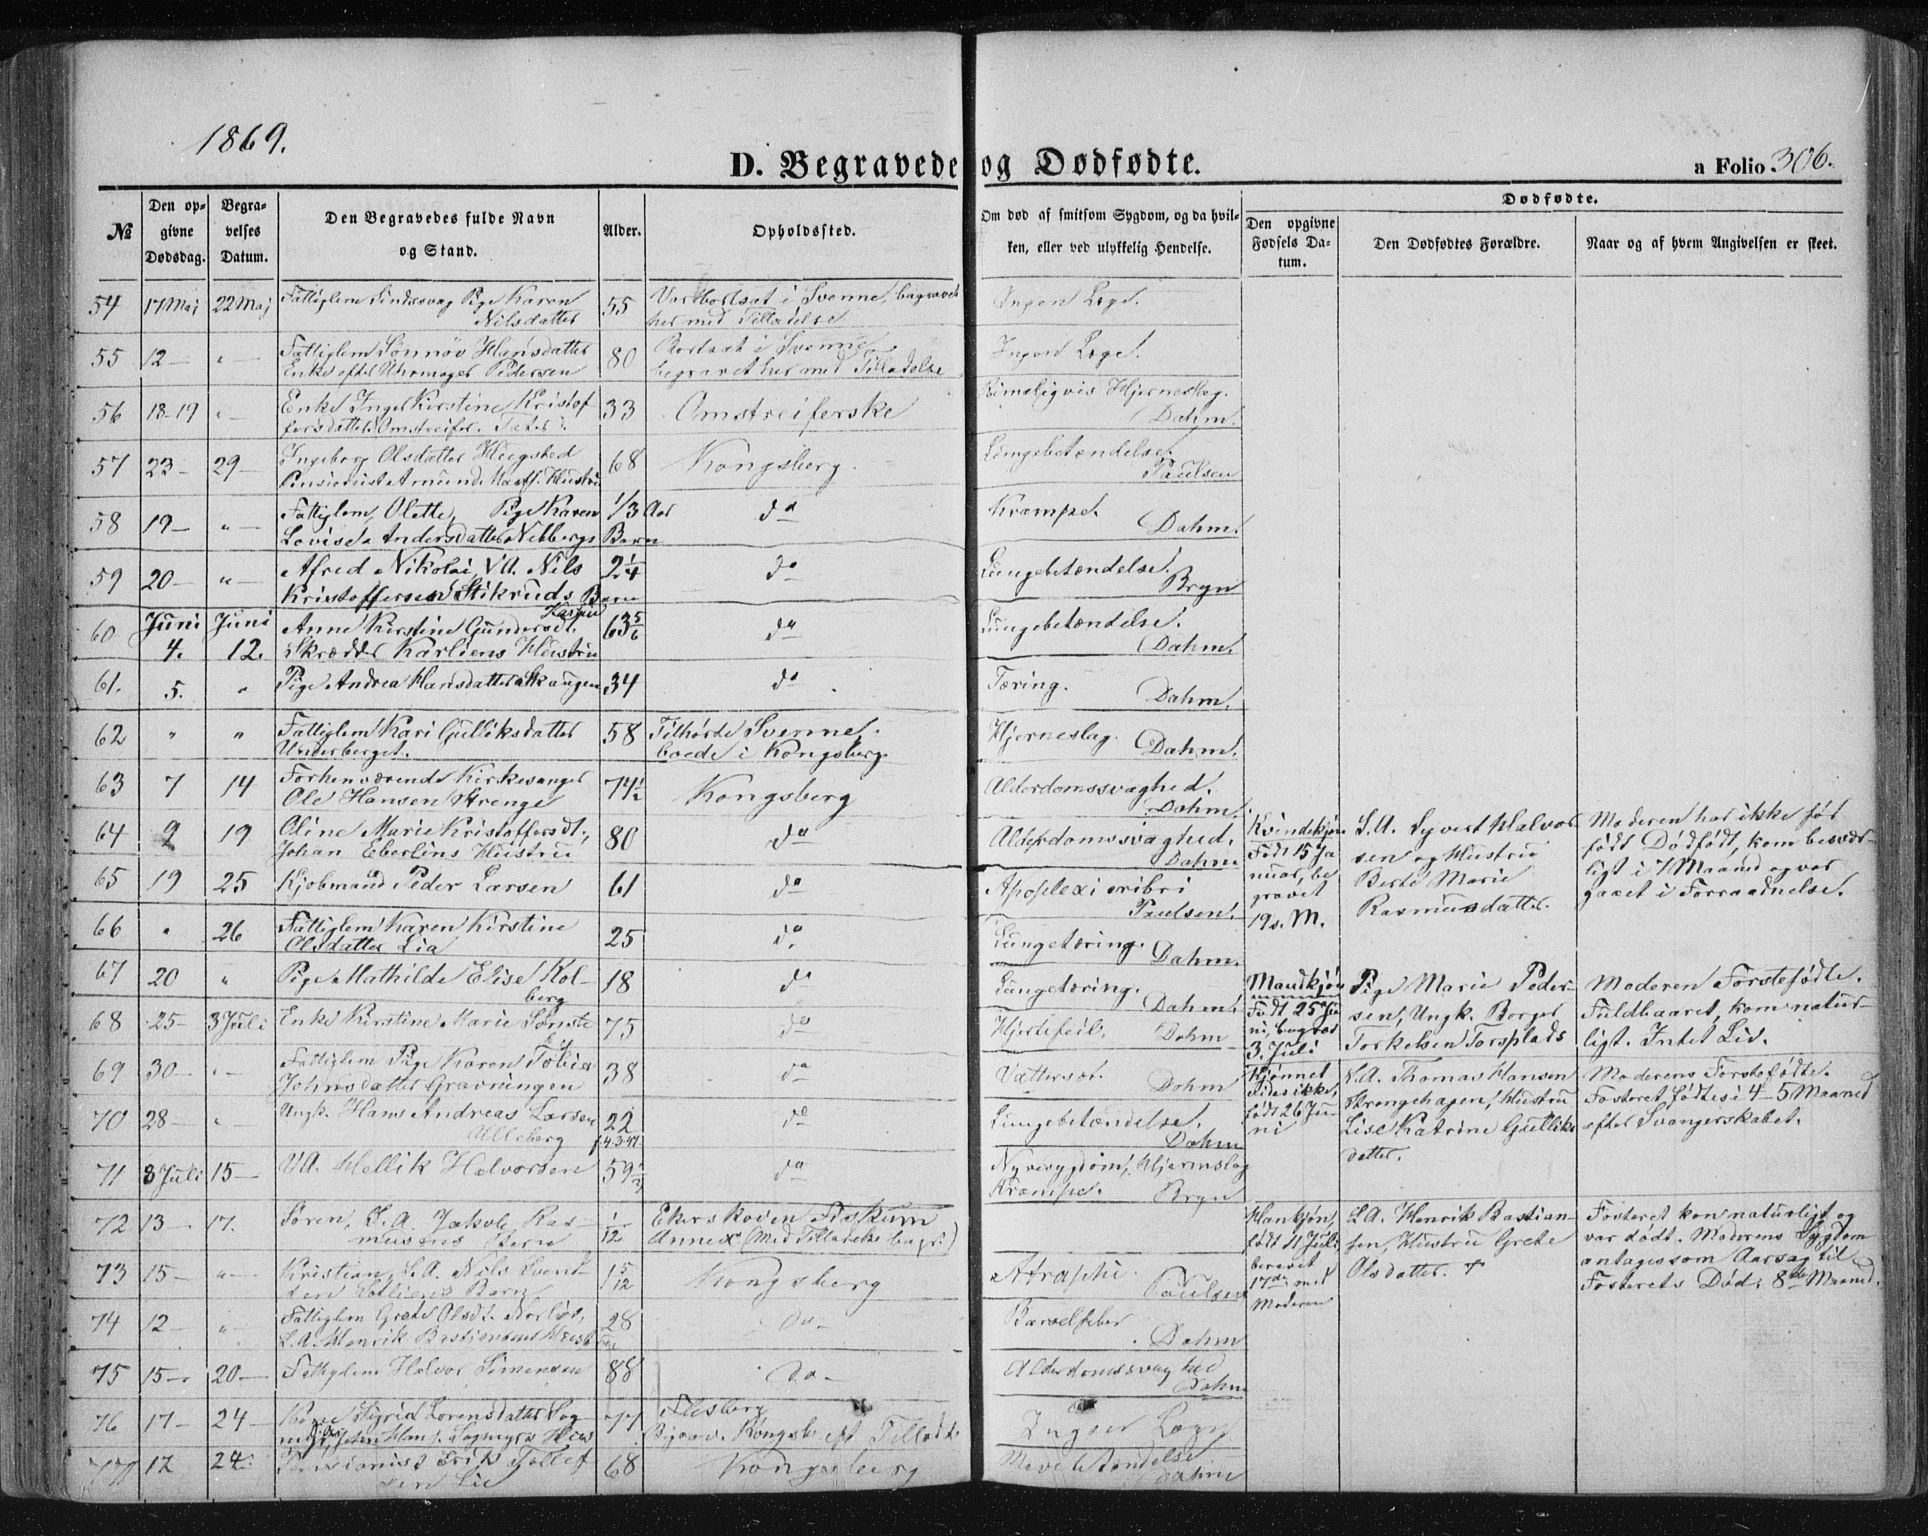 1869.
D. Begravede og Dødfødte.
a Folio 306.
№
Den opgivne Dødsdag.
Begravelses Datum.
Den Begravedes fulde Navn og Stand.
Alder.
Opholdssted.
Om død af smitsom Sygdom, og da hvilken, eller ved ulykkelig Hendelse.
Dødfødte.
Den opgivne Fødsels Datum.
Den Dødfødtes Forældre.
Naar og af hvem Angivelsen er skeet.
54 17 Mai 22 Maj Fattiglem Sindssvag Pige Karen Nilsdatter 55 Var bortsat i Svenne, begravet her med Tilladelse Ingen Læge.
55 12 — " — Fattiglem Sønnøv Hansdatter Enke efter Uhrmager Pedersen 80 Bortsat i Svenne, begravet her med Tilladelse Ingen Læge.
56 18-19 " — Enke Inger Kirstine Kristoffersdatter, Omstreifer. 33 Omstreiferske Rimeligvis Hjerneslag. Dahm.
57 23 — 29 — Ingeborg Olsdatter Hegsted Pensionist Amund Hustru 68 Kongsberg Lungebetændelse. Paulsen
58 19 — " — Fattiglem, Olette, Pige Karen Lovise Andersdatter Nebbergs Barn 1/3 Aar do Krampe. Dahm.
59 20 — " — Afred Nikolai, V.A. Nils Kristoffersen Stikruds Barn 2 1/4 do Lungebetændelse. Bryn
60 Juni 4. Juni 12. Anne Kirstine Gundersdt. Skrædder Karlsens Hustru 63 5/6 do Lungebetændelse. Dahm.
61. 5. " Pige Andrea Hansdatter Skaugen 34 do Tæring. Dahm.
62 " " Fattiglem Kari Gulliksdatter Underberget. 58 Tilhørte Svenne, boede i Kongsberg. Hjerneslag. Dahm.
63 7 14 Forhenværende Kirkesanger Ole Hansen Strenge 74 1/2 Kongsberg Alderdomssvaghed. Dahm.
64 9 19 Oline Marie Kristoffersdt., Johan Eberlins Hustru 80 do Alderdomssvaghed. Dahm
65 19 25 Kjøbmand Peder Larsen 61 do Apoplexi cribri Paulsen.
66 " 26 Fattiglem Karen Kirstine Olsdatter Lia 25 do Lungetæring. Dahm.
67 20 " Pige Mathilde Elise Kolberg 18 do Lungetæring. Dahm.
68 25 — 3 Juli Enke Kirstine Marie Sønsteby 75 do Hjertefeil. Dahm
69 30 — " — Fattiglem Pige Karen Tobia Johnsdatter Gravningen 38 do Vattersot. Dahm
70 28 — " Ungk. Hans Andreas Larsen Ulleberg 22 f. 4.3.47. do Lungebetændelse. Dahm
71 8 Juli 15 — V.A. Hellik Halvorsen 59 1/2 do Nyresygdom, Hjerneslag Krampe. Bryn
72 13 — 17. Søren, S.A. Jakob Rasmusens Barn 1/12 Ekerskoven Fiskum Annex (med Tilladelse begr.)
73 15 — " — Kristian, L.A. Nils Barn 1 5/12 Kongsberg Atraphi. Paulsen
74 12 — " — Fattiglem Grete Olsdt. L.A. Henrik Bastiansens Hustru 28 do Barselfeber Dahm
75 15 — 20 — Fattiglem Halvor Simensen 88 do Alderdomssvaghed Dahm
76 17 — 24 — Kone Sigrid Lorensdatter 77 Flesberg Begrav. Kongsb. eft Tillad. Ingen Læge
77 17 24. Pensionist Erik Tollefsen Lie 68 Kongsberg Mavebetændelse Dahm
Kvindekjøn Født 15 Januar, begravet 19 s. M. S.A. Syvert Halvorsen og Hustru Berte Marie Rasmusdatter. Moderen har ikke før født Dødfødt, kom besværligt i 7 Maaned og var gaaet i Forraadnelse.
Mandkjøn Født 25 Juni, begrav 3. Juli Pige Marie Pedersen, Ungk. Borger Torkelsen Torsplads Moderen Førstefødte. Fuldbaaret, kom naturligt. Intet Liv.
Kjønnet vides ikke, født 26 Juni V.A. Thomas Hansen Strengehagen, Hustru Lise Katrine Gulliksdatter. Moderens Førstefødte. Fosteret fødtes i 4-5 Maaned efter Svangerskabet.
Hankjøn, født 11 Juli begravet 17de med Moderen L.A. Henrik Bastiansen, Hustru Grete Olsdatter. + Fosteret kom naturligt og var dødt. Moderens Sygdom antages som Aarsag til Fosterets Død. 8de Maaned.